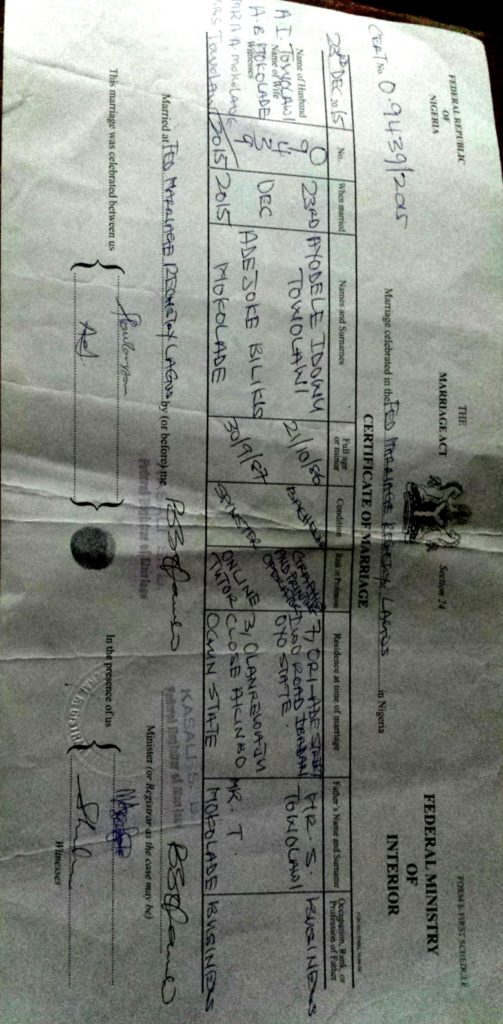 FORM E FIRST SCHEDULE
FEDERAL REPUBLIC
OF
NIGERIA
THE
MARRIAGE ACT
Section 24
FEDERAL MINISTRY
OF
INTERIOR
CERTIFICATE OF MARRIAGE
CERT No. 0.9439/2015
Marriage celebrated in the FED MARRIAGE REGISTRY LAGOS in Nigeria
23RD DEC 2015
No.
When married
Names and Surnames
Full age or minor
Condition
Rank or Profession
Residence at time of marriage
Father's Name and Surname
Occupation, Rank, or Profession of Father
Name of Husband
A.I. TOWOLAWI
Name of Wife
A.B MOKOLADE
Witnesses
MR A.A. MOKOLADE
MRS TOWOLAWI
0
9
4
3
9
2015
23RD
DEC
2015
AYODELE IDOWU
TOWOLAWI
21/10/86
BACHELOR
GRAPHIC
AND PRINT
OPERATOR
7, ORI-ADE STREET
IWO ROAD IBADAN
OYO STATE.
MR. S.
TOWOLAWI
BUSINESS
ADEJOKE BILIKIS
MOKOLADE
30/9/87
SPINSTER
ONLINE
TUTOR
3, OLANREWAJU
CLOSE AKINBO
OGUN STATE
MR. T
MOKOLADE
BUSINESS
Married at FED MARRIAGE REGISTRY LAGOS by (or before) me
Federal Registrar of Marriage
KASALI S. B
Federal Registrar of Marriage
Minister (or Registrar as the case may be)
This marriage was celebrated between us
In the presence of us
Witnesses